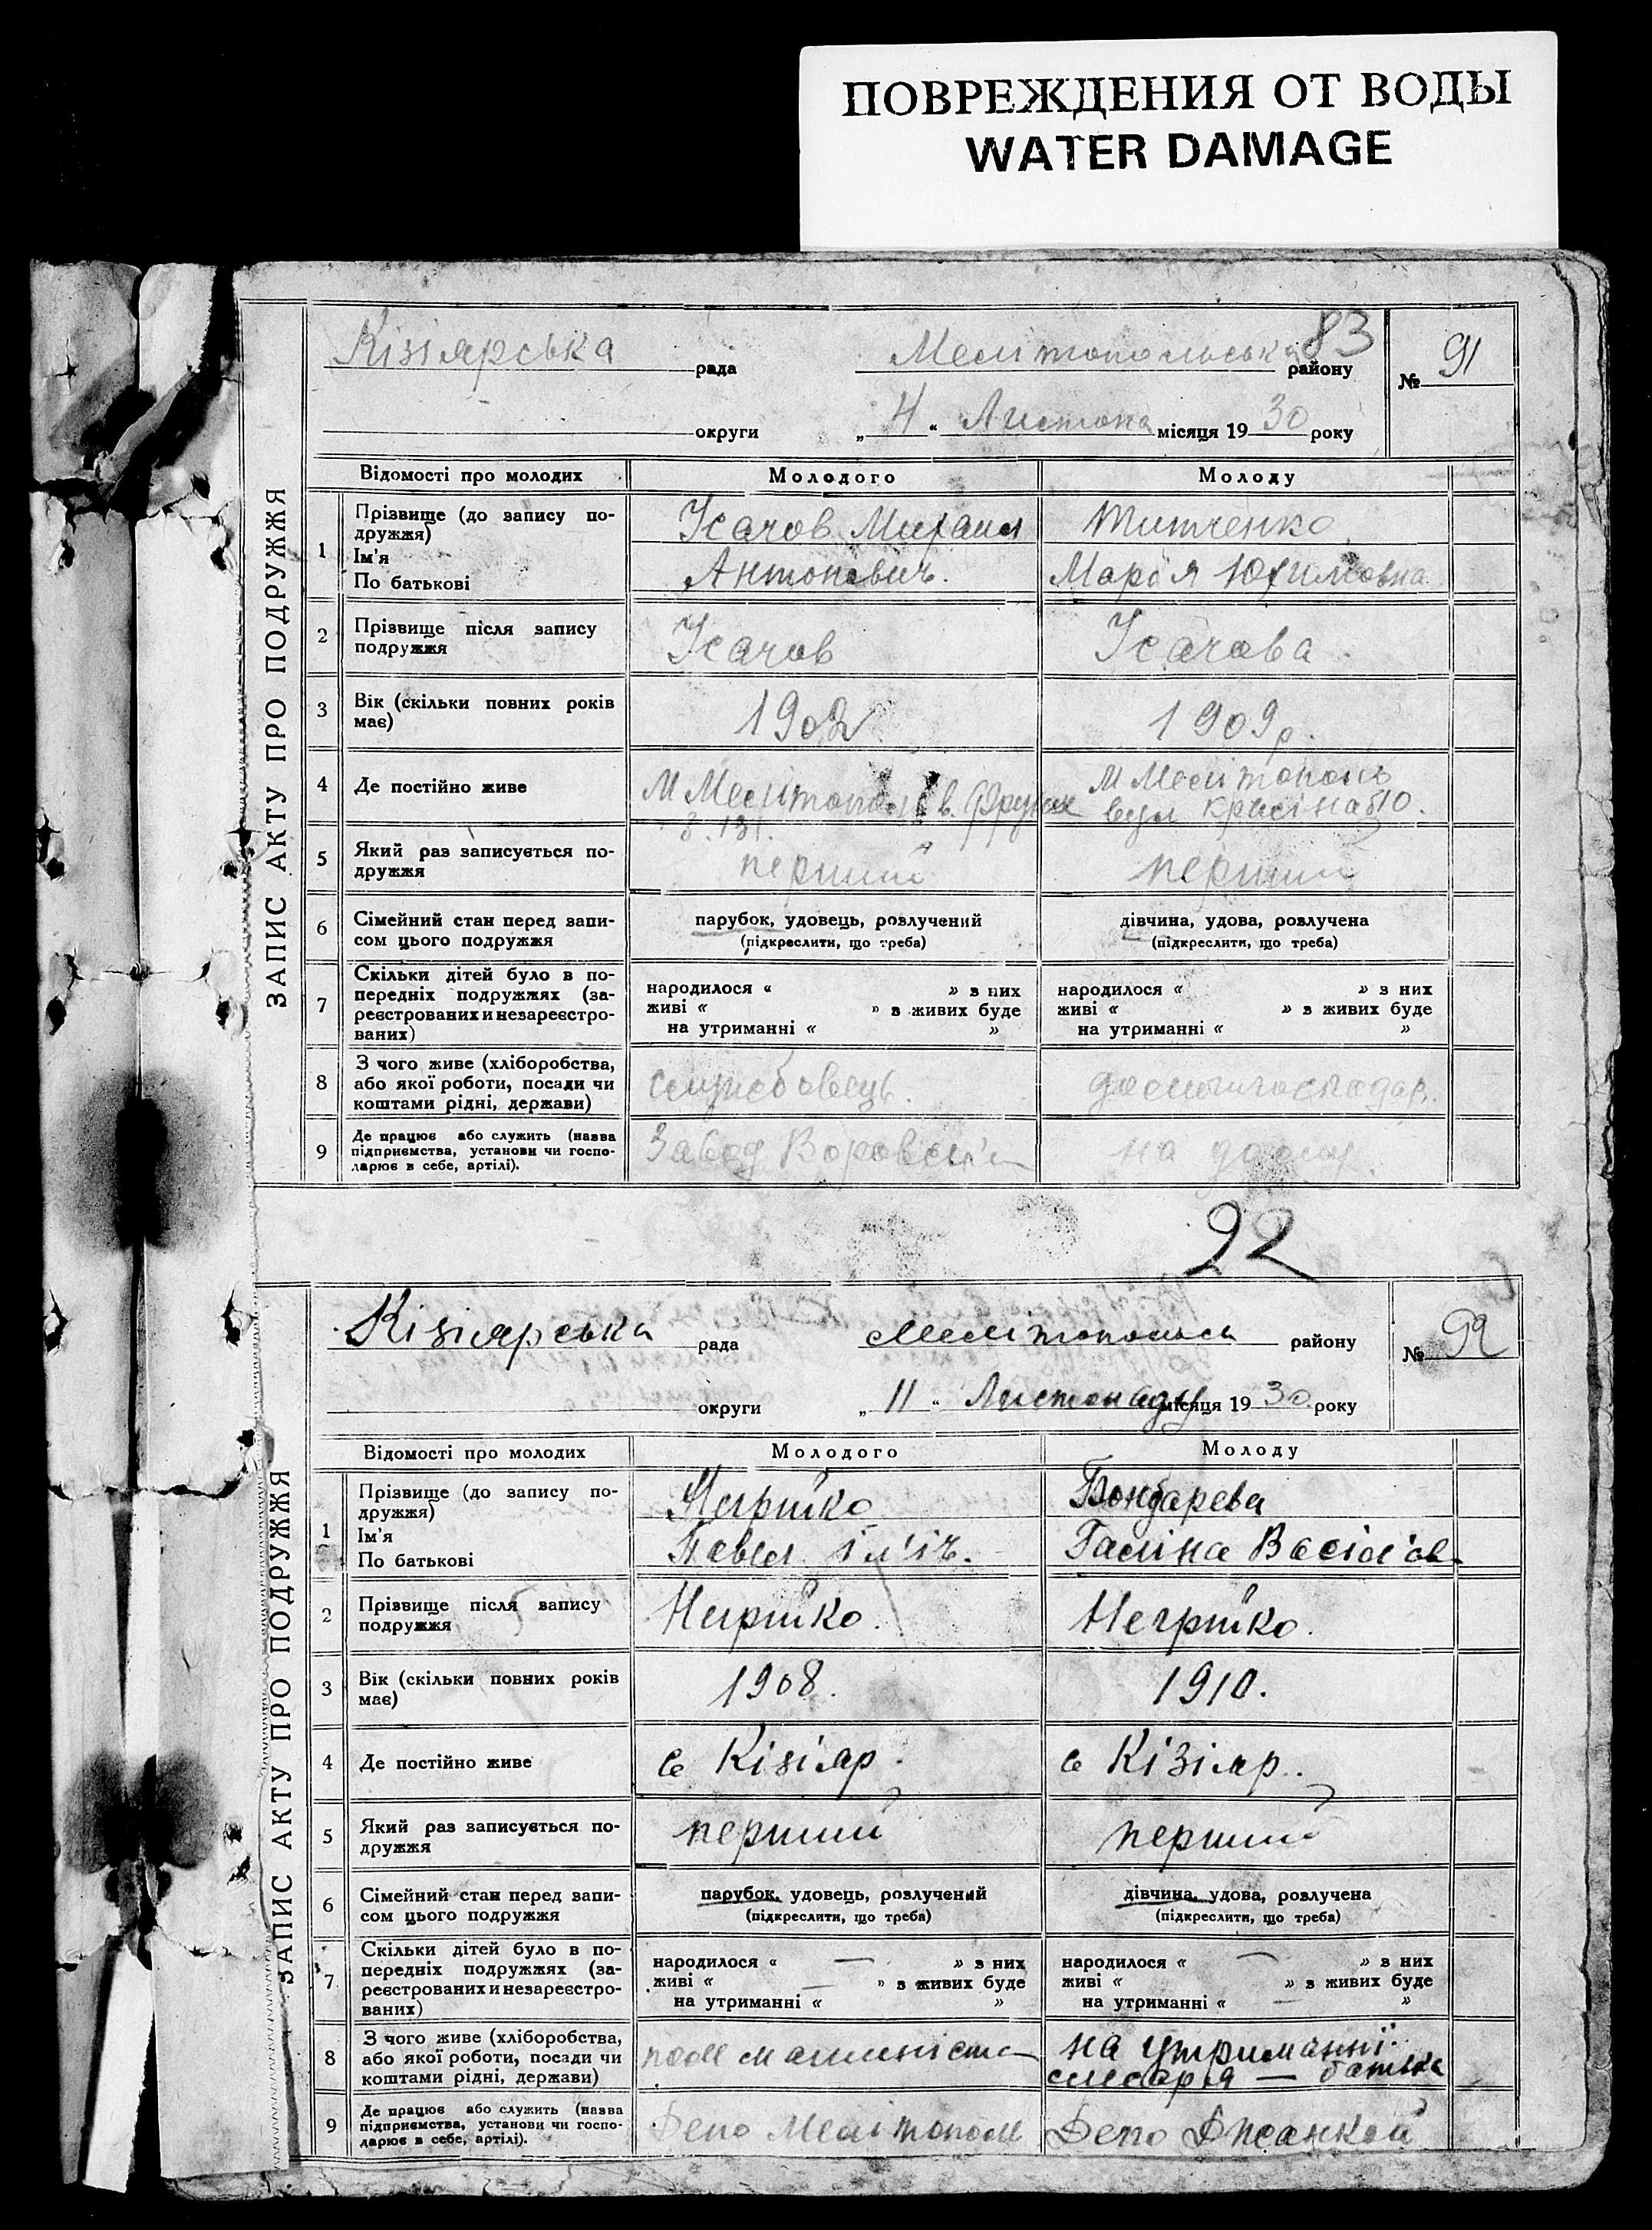 ПОВРЕЖДЕНИЯ ОТ ВОДЫ
WATER DAMAGE
83
Кізіярська рада Мелітопольська району № 91
округи „ 4 “ Листопа місяця 1930 року
ЗАПИС АКТУ ПРО ПОДРУЖЖЯ
Відомості про молодих Молодого Молоду
1 Прізвище (до запису по-
дружжя)
Ім'я
По батькові
Усачов Михаил
Антонович.
Титченко
Марія Юхимовна
2 Прізвище після запису
подружжя
Усачов
Усачова
3 Вік (скільки повних років
має)
1902
1909р.
4 Де постійно живе
М Мелітополь в. Фрунзе
3. 131.
М Мелітополь
вул
5 Який раз записується по-
дружжя
перший
перший
6 Сімейний стан перед запи-
сом цього подружжя
парубок, удовець, розлучений
(підкреслити, що треба)
дівчина, удова, розлучена
(підкреслити, що треба)
7 Скільки дітей було в по-
передніх подружжях (за-
реєстрованих и незареєстро-
ваних)
народилося « » з них
живі « » з живих буде
на утриманні « »
народилося « » з них
живі « » з живих буде
на утриманні « »
8 З чого живе (хліборобства,
або якої роботи, посади чи
коштами рідні, держави)
службовець.
9 Де працює або служить (назва
підприємства, установи чи госпо-
дарює в себе, артілі).
Завод Воровск
на дому.
92
Кізіярська рада Мелітопольск району № 92
округи „ 11 “ Листопаду місяця 1930 року
ЗАПИС АКТУ ПРО ПОДРУЖЖЯ
Відомості про молодих Молодого Молоду
1 Прізвище (до запису по-
дружжя)
Ім'я
По батькові
Негрійко
Павел Іл'іч.
Бондарева
Галіна Васіл'ов.
2 Прізвище після запису
подружжя
Негрійко.
Негрійко.
3 Вік (скільки повних років
має)
1908.
1910.
4 Де постійно живе
с Кізіяр.
с Кізіяр.
5 Який раз записується по-
дружжя
перший
перший
6 Сімейний стан перед запи-
сом цього подружжя
парубок, удовець, розлучений
(підкреслити, що треба)
дівчина, удова, розлучена
(підкреслити, що треба)
7 Скільки дітей було в по-
передніх подружжях (за-
реєстрованих и незареєстро-
ваних)
народилося « — » з них
живі « — » з живих буде
на утриманні « »
народилося « — » з них
живі « » з живих буде
на утриманні « — »
8 З чого живе (хліборобства,
або якої роботи, посади чи
коштами рідні, держави)
пом машиніста
на утриманні
слесаря — батька
9 Де працює або служить (назва
підприємства, установи чи госпо-
дарює в себе, артілі).
Депо Мелітополь
Депо Джанкой